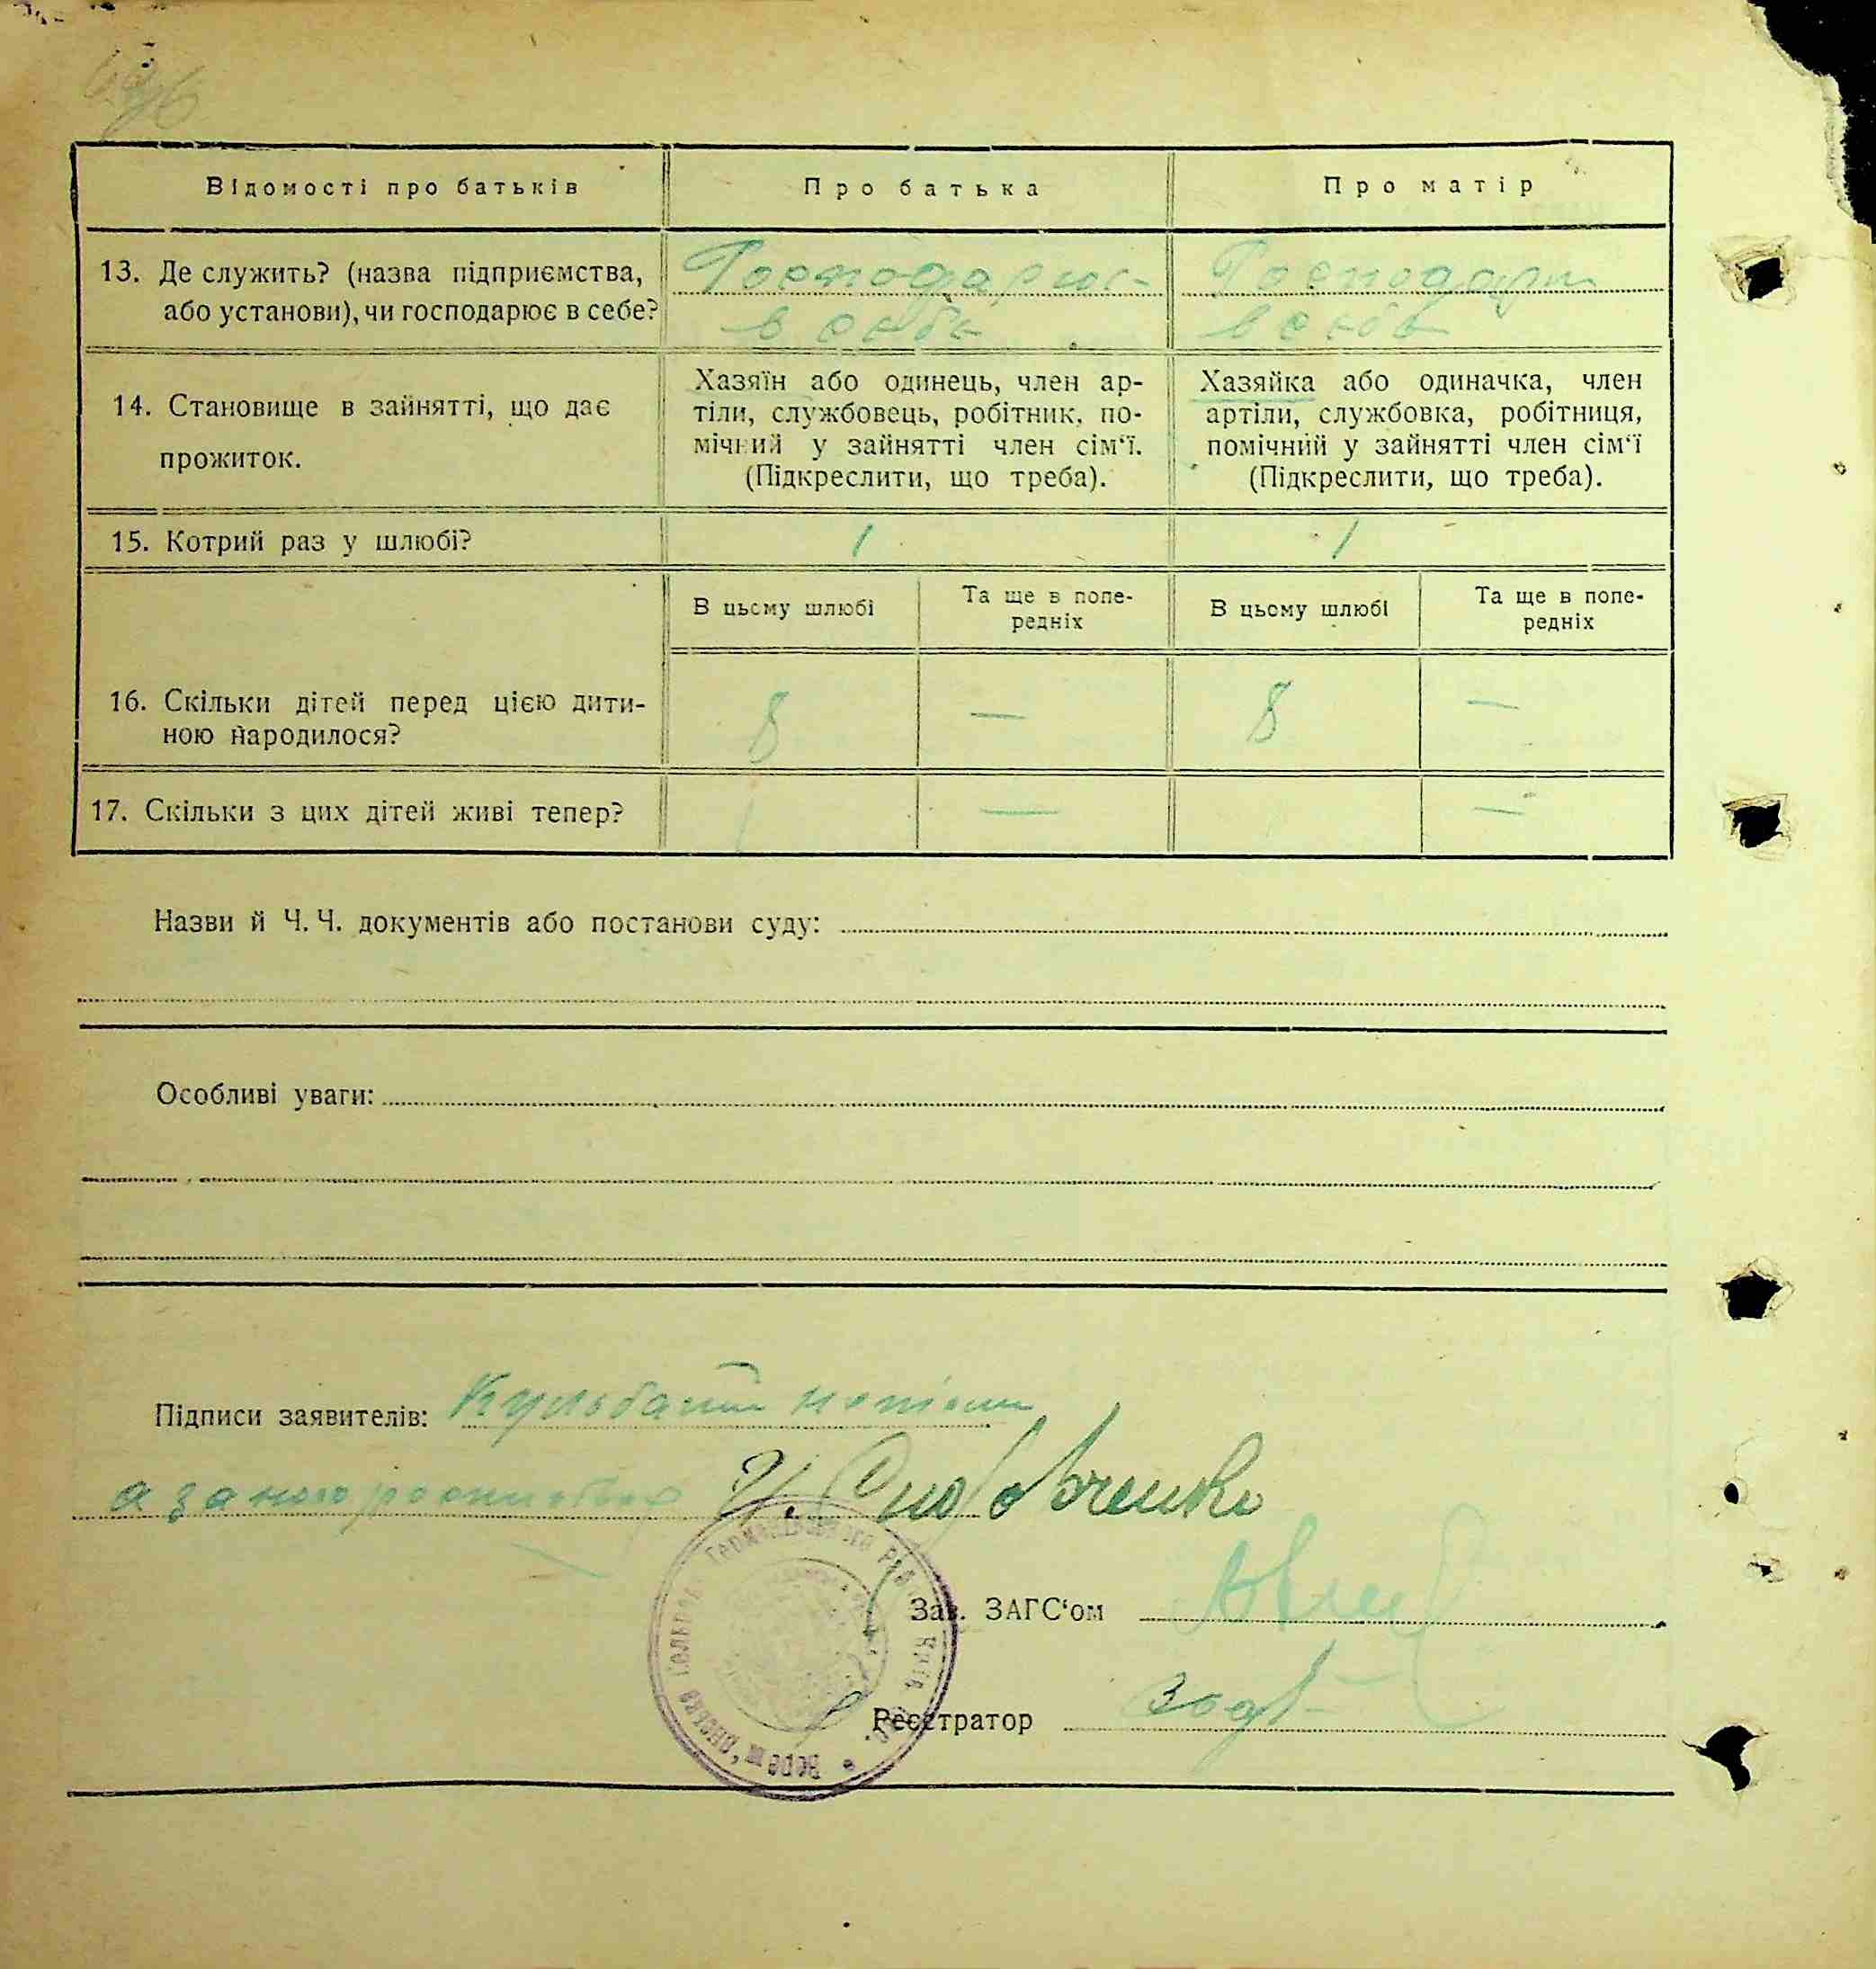 Відомості про батьків
Про батька
Про матір
13. Де служить? (назва підприємства,
або установи), чи господарює в себе?
Господарює
в себе
Господарює
в себе
14. Становище в зайнятті, що дає
прожиток.
Хазяїн або одинець, член ар-
тіли, службовець, робітник, по-
мічний у зайнятті член сім‘ї.
(Підкреслити, що треба).
Хазяйка або одиначка, член
артіли, службовка, робітниця,
помічний у зайнятті член сім‘ї
(Підкреслити, що треба).
15. Котрий раз у шлюбі?
1
1
В цьому шлюбі
Та ще в попе-
редніх
В цьому шлюбі
Та ще в попе-
редніх
16. Скільки дітей перед цією дити-
ною народилося?
8
—
8
—
17. Скільки з цих дітей живі тепер?
—
—
Назви й Ч. Ч. документів або постанови суду:
Особливі уваги:
Підписи заявителів:
а за його
Зав. ЗАГС‘ом
Реєстратор